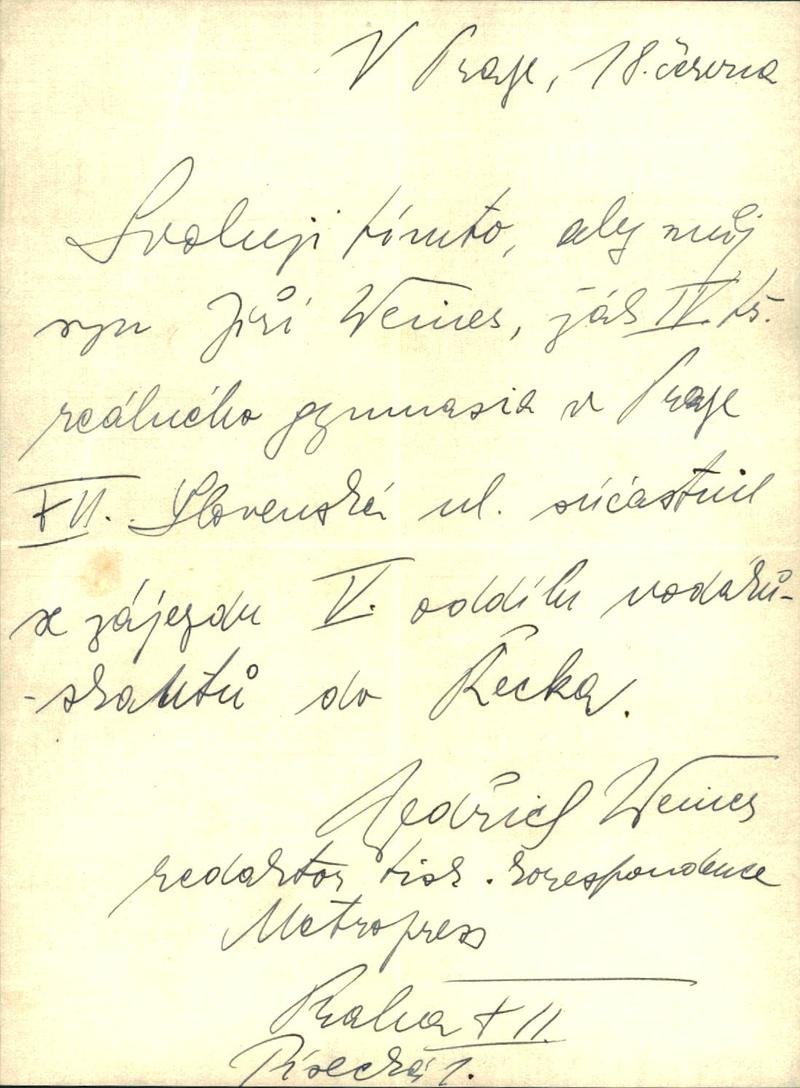 V Praze, 18. června
Svoluji tímto, aby můj
syn Jiří Weiner, žák IV. tř.
reálného gymnasia v Praze
XII. Slovenská ul. súčastnil
se zájezdu V. oddílu vodáků-
-skautů do Řecka.
Jindřich Weiner
redaktor tisk. korespondence
Metropress
Praha XII.
Písecká 1.